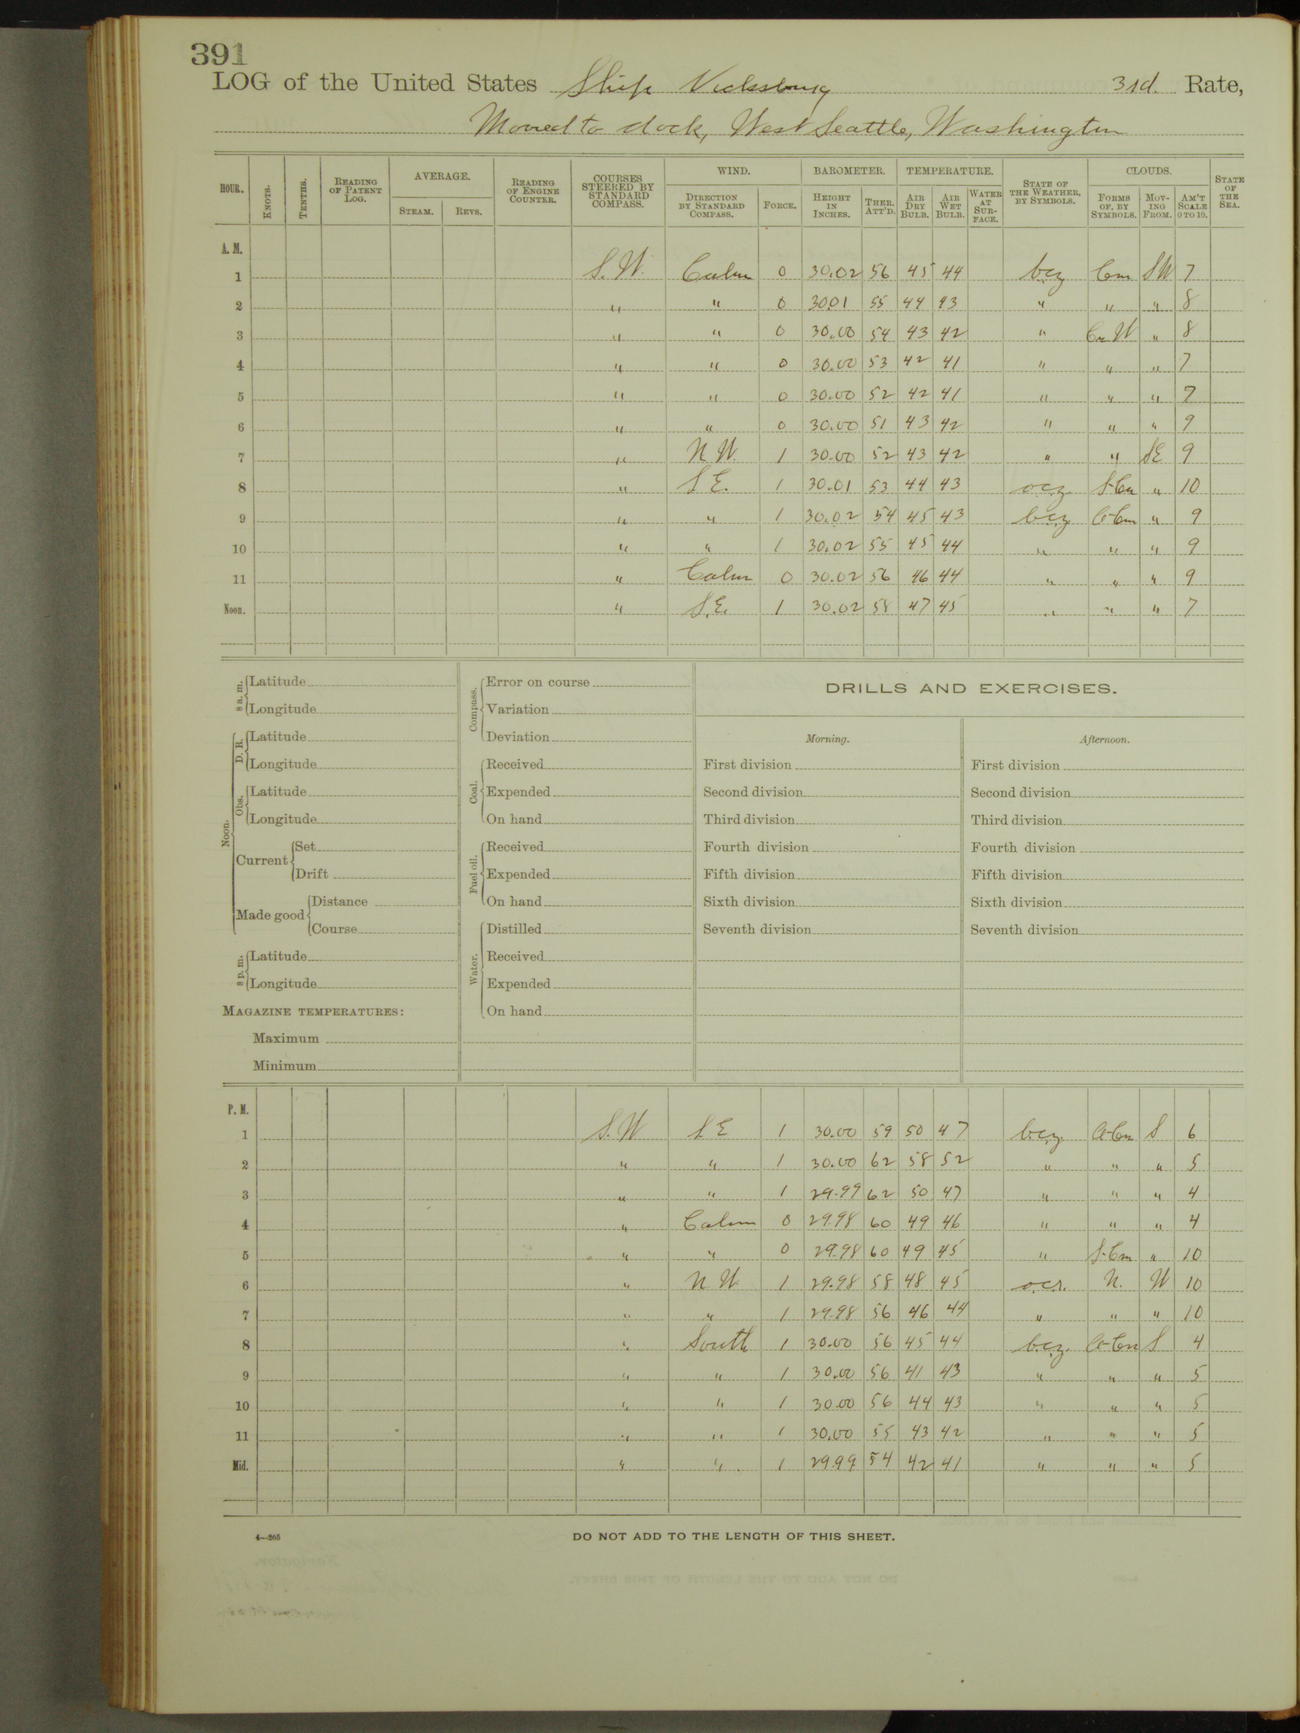 391
LOG of the United States Ship Vicksburg 3rd. Rate,
Moored to dock, West Seattle, Washington
HOUR. KNOTS. TENTHS. READING OF PATENT LOG. AVERAGE. STEAM. REVS. READING OF ENGINE COUNTER. COURSES STEERED BY STANDARD COMPASS. WIND. DIRECTION BY STANDARD COMPASS. FORCE. BAROMETER. HEIGHT IN INCHES. THER. ATT'D. TEMPERATURE. AIR DRY BULB. AIR WET BULB. WATER AT SURFACE. STATE OF THE WEATHER, BY SYMBOLS. CLOUDS. FORMS OF, BY SYMBOLS. MOVING FROM. AM'T SCALE 0 TO 10. STATE OF THE SEA.
A. M.
1 S.W. Calm 0 30.02 56 45 44 bcz Cum SW 7
2 " " 0 30.01 55 44 43 " " " 8
3 " " 0 30.00 54 43 42 " Cu. N " 8
4 " " 0 30.00 53 42 41 " " " 7
5 " " 0 30.00 52 42 41 " " " 7
6 " " 0 30.00 51 43 42 " " " 9
7 " N W. 1 30.00 52 43 42 " " SE 9
8 " S E. 1 30.01 53 44 43 o.c.z. S-Cu " 10
9 " " 1 30.02 54 45 43 b.c.z. A-Cum " 9
10 " " 1 30.02 55 45 44 " " " 9
11 " Calm 0 30.02 56 46 44 " " " 9
Noon. " S.E. 1 30.02 58 47 45 " " " 7
8 a. m. Latitude
Longitude
Noon. D. R. Latitude
Longitude
Obs. Latitude
Longitude
Current Set
Drift
Made good Distance
Course
8 p. m. Latitude
Longitude
MAGAZINE TEMPERATURES:
Maximum
Minimum
Compass. Error on course
Variation
Deviation
Coal. Received
Expended
On hand
Fuel oil. Received
Expended
On hand
Water. Distilled
Received
Expended
On hand
DRILLS AND EXERCISES.
Morning. Afternoon.
First division First division
Second division Second division
Third division Third division
Fourth division Fourth division
Fifth division Fifth division
Sixth division Sixth division
Seventh division Seventh division
P. M.
1 S.W S E 1 30.00 59 50 47 b.c.z. A-Cu S 6
2 " " 1 30.00 62 58 52 " " " 5
3 " " 1 29.99 62 50 47 " " " 4
4 " Calm 0 29.98 60 49 46 " " " 4
5 " " 0 29.98 60 49 45 " S-Cum " 10
6 " N W 1 29.98 58 48 45 o.c.r. N. W 10
7 " " 1 29.98 56 46 44 " " " 10
8 " South 1 30.00 56 45 44 b.c.z. A-Cu S 4
9 " " 1 30.00 56 41 43 " " " 5
10 " " 1 30.00 56 44 43 " " " 5
11 " " 1 30.00 55 43 42 " " " 5
Mid. " " 1 29.99 54 42 41 " " " 5
4—265
DO NOT ADD TO THE LENGTH OF THIS SHEET.